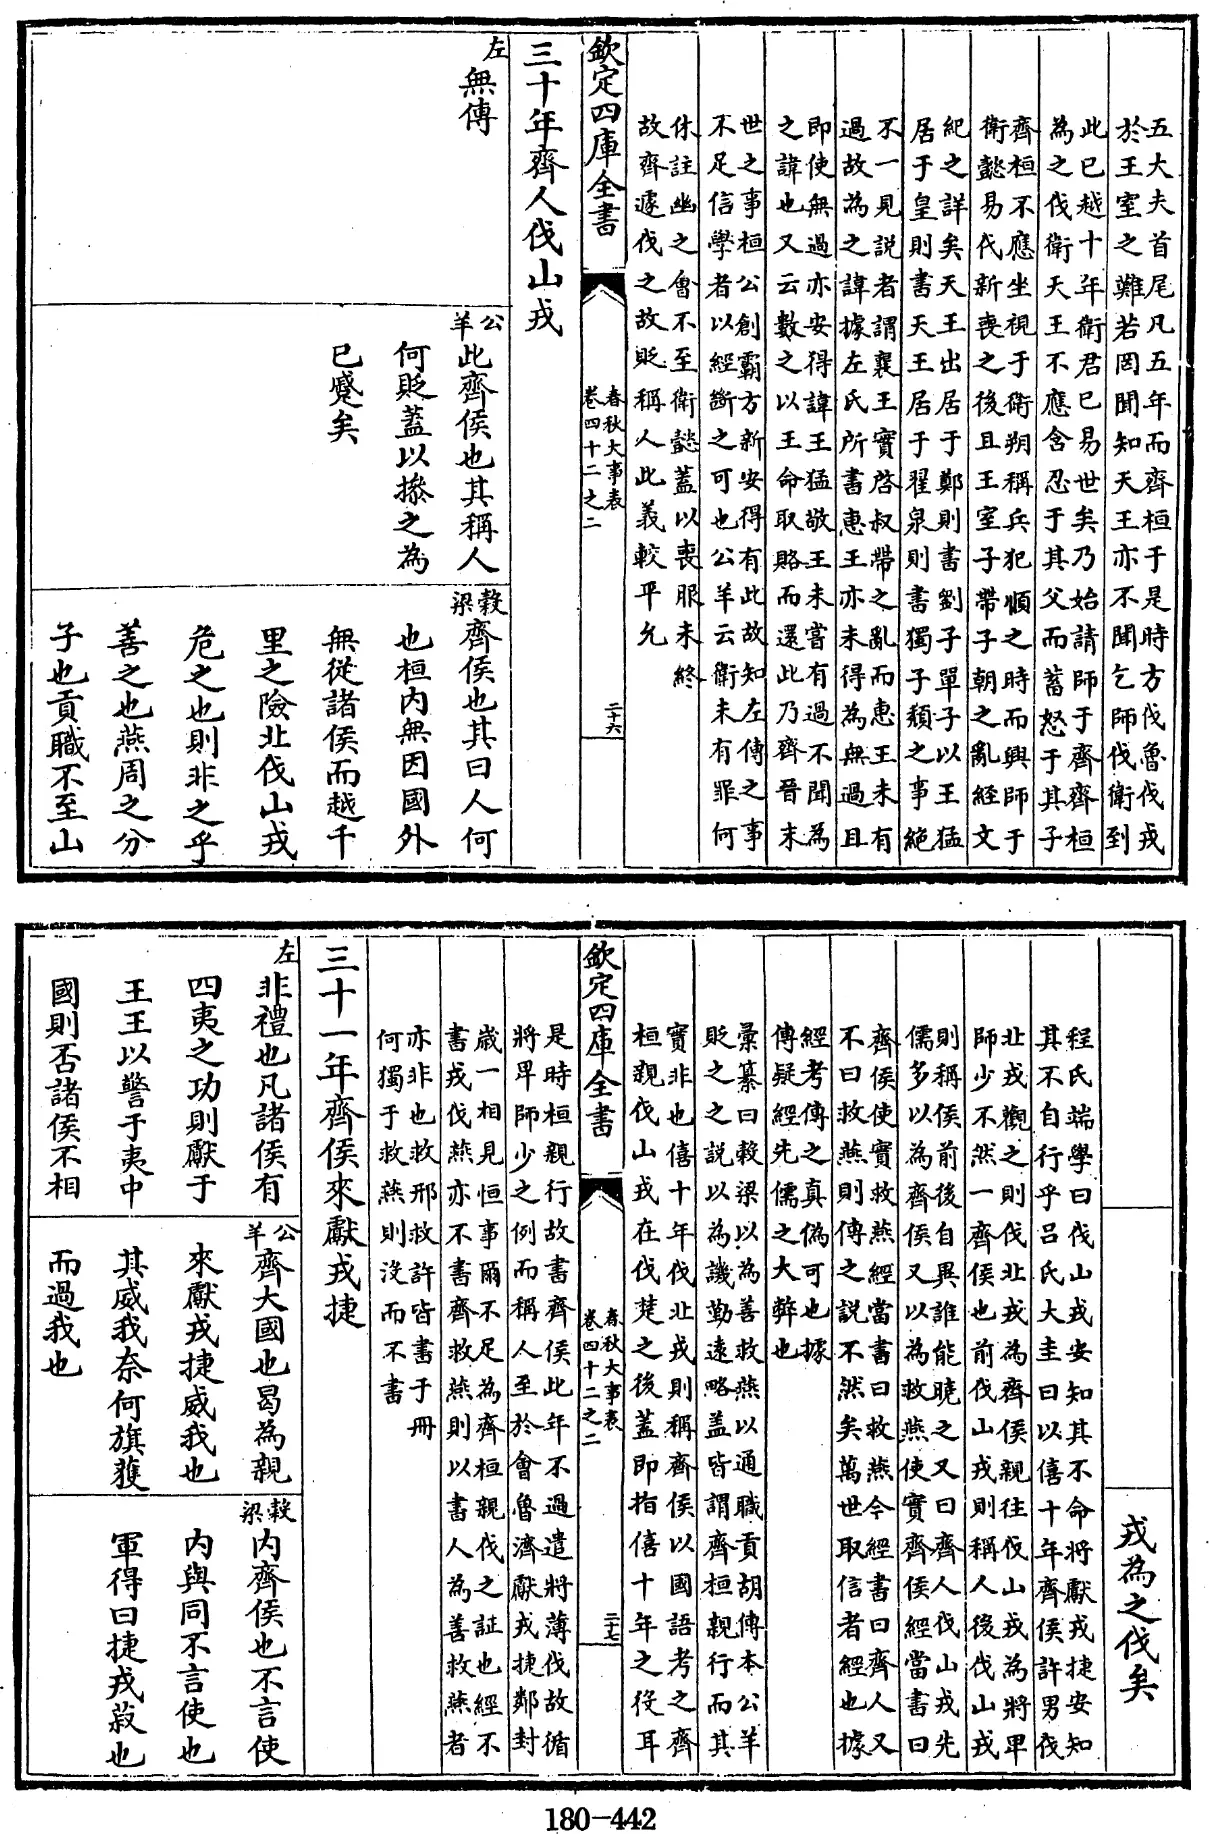 五大夫首尾凡五年而齊桓于是時方伐魯伐戎
於王室之難若罔聞知天王亦不聞乞師伐衛到
此已越十年衛君已易世矣乃始請師于齊齊桓
為之伐衛天王不應含忍于其父而蓄怒于其子
齊桓不應坐視于衛朔稱兵犯順之時而興師于
衛懿易代新喪之後且王室子帶子朝之亂經文
紀之詳矣天王出居于鄭則書劉子單子以王猛
居于皇則書天王居于翟泉則書獨子頹之事絶
不一見説者謂襄王實啓叔帶之亂而惠王未有
過故為之諱據左氏所書惠王亦未得為無過且
即使無過亦安得諱王猛敬王未嘗有過不聞為
之諱也又云數之以王命取賂而還此乃齊晉末
世之事桓公創霸方新安得有此故知左傳之事
不足信學者以經斷之可也公羊云衛未有罪何
休註幽之會不至衛懿蓋以喪服未終
故齊遽伐之故貶稱人此義較平允
欽定四庫全書
春秋大事表
卷四十二之二
二十六
三十年齊人伐山戎
左
無傳
公羊
此齊侯也其稱人
何貶蓋以摻之為
已蹙矣
穀梁
齊侯也其曰人何
也桓内無因國外
無從諸侯而越千
里之險北伐山戎
危之也則非之乎
善之也燕周之分
子也貢職不至山
戎為之伐矣
程氏端學曰伐山戎安知其不命將獻戎捷安知
其不自行乎吕氏大圭曰以僖十年齊侯許男伐
北戎觀之則伐北戎為齊侯親往伐山戎為將卑
師少不然一齊侯也前伐山戎則稱人後伐山戎
則稱侯前後自異誰能曉之又曰齊人伐山戎先
儒多以為齊侯又以為救燕使實齊侯經當書曰
齊侯使實救燕經當書曰救燕今經書曰齊人又
不曰救燕則傳之説不然矣萬世取信者經也據
經考傳之真偽可也據
傳疑經先儒之大弊也
彚纂曰穀梁以為善救燕以通職貢胡傳本公羊
貶之之説以為譏勤遠略蓋皆謂齊桓親行而其
實非也僖十年伐北戎則稱齊侯以國語考之齊
桓親伐山戎在伐楚之後蓋即指僖十年之役耳
欽定四庫全書
春秋大事表
卷四十二之二
二十七
是時桓親行故書齊侯此年不過遣將薄伐故循
將卑師少之例而稱人至於會魯濟獻戎捷鄰封
歲一相見恒事爾不足為齊桓親伐之証也經不
書戎伐燕亦不書齊救燕則以書人為善救燕者
亦非也救邢救許皆書于冊
何獨于救燕則沒而不書
三十一年齊侯來獻戎捷
左
非禮也凡諸侯有
四夷之功則獻于
王王以警于夷中
國則否諸侯不相
公羊
齊大國也曷為親
來獻戎捷威我也
其威我奈何旗獲
而過我也
穀梁
内齊侯也不言使
内與同不言使也
軍得曰捷戎菽也
180-442